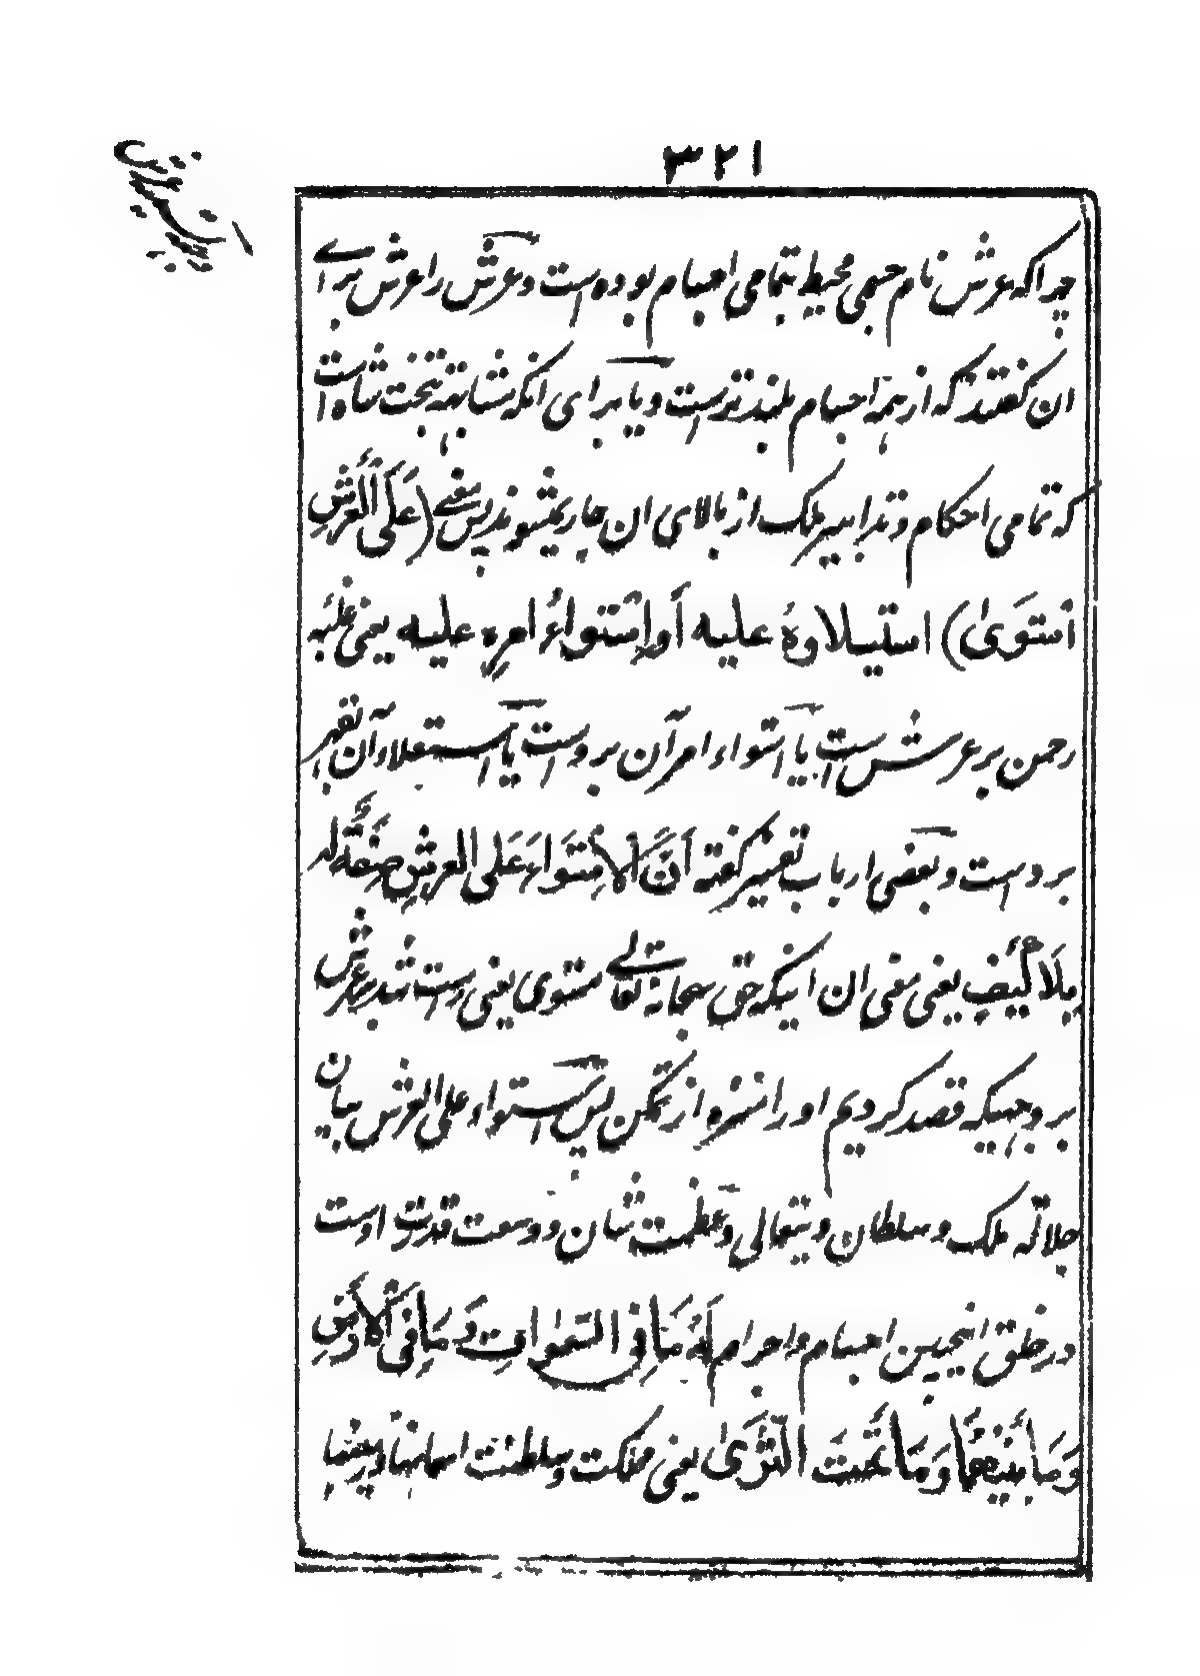 ۳۲۱
چراکه عرش نام جسمی محیط بتمامی اجسام بوده است و عرش را عرش برای
ان گفتند که از همه اجسام بلندتر است و یا برای انکه مشابهه بتخت شاه است
که تمامی احکام و تدابیر ملک از بالای ان جاری میشوند پس معنی (عَلَی الْعَرْشِ
اسْتَوَیٰ) استیلاوهٔ علیه أو إسْتواءُ امرِهِ علیه یعنی غلبه
رحمن بر عرش است یا استواء امر آن بر وست یا استعلاء آن
بر دست و بعضی ارباب تفسیر گفته أنَّ الاِسْتِوَاءَ عَلَی العرشِ صِفَةٌ له
بِلَا کَیْفٍ یعنی معنی ان اینکه حق سبحانه تعالی مستوی یعنی راست شد بر عرش
بر وجهیکه قصد کردیم او را منزه از تمکن پس استواء علی العرش بیان
جلالة ملک و سلطان و تعالی و عظمت شان و وسعت قدرت اوست
در خلق اینچنین اجسام و اجرام لَهُ مَا فِی السَّمٰوَاتِ وَ مَا فِی الْاَرْضِ
وَ مَا بَیْنَهُمَا وَ مَا تَحْتَ الثَّرَیٰ یعنی مملکت و سلطنت اسمانها و زمینها